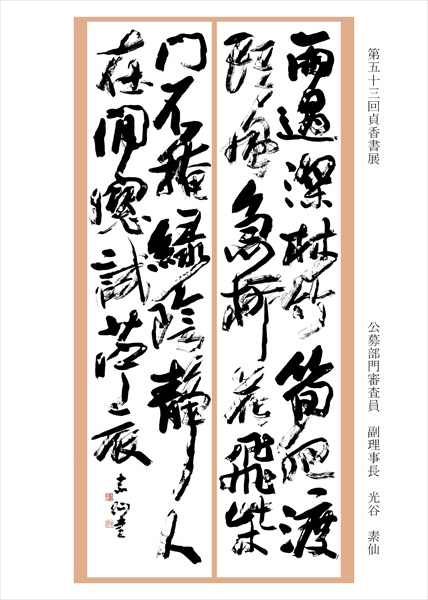 第五十三回貞香書展
公募部門審査員 副理事長 光谷 素仙
雨過深林竹筍肥渡
頭風急柳花飛柴
門不掩緑陰静人
在閒窓試苧衣
素仙書